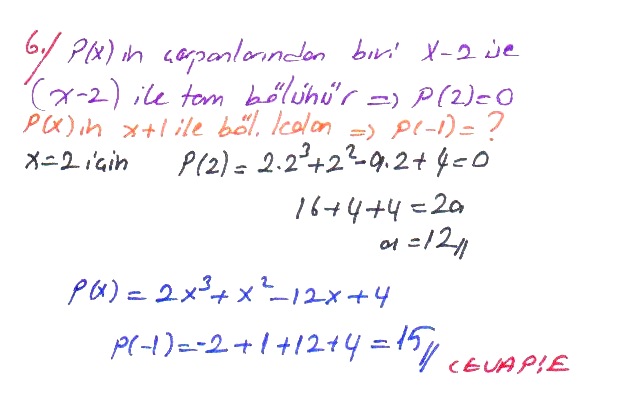 6./ P(x) in çarpanlarından biri x-2 ise
(x-2) ile tam bölünür => P(2)=0
P(x) in x+1 ile böl. kalan => P(-1)=?
x=2 için P(2)=2.2³+2²-a.2+4=0
16+4+4=2a
a=12//
P(x)=2x³+x²-12x+4
P(-1)=-2+1+12+4=15//
CEVAP:E